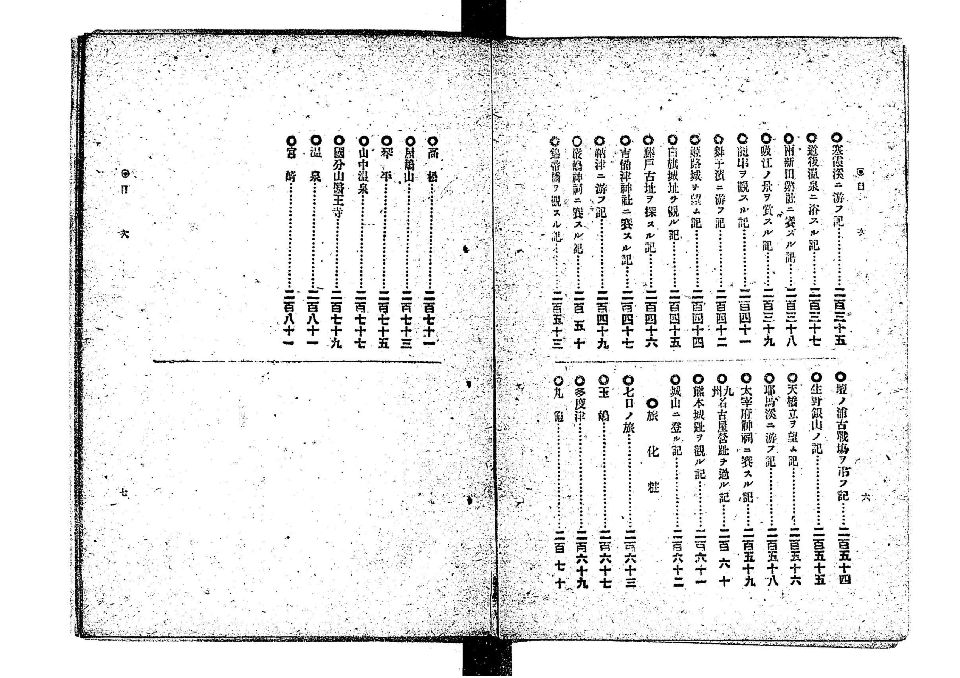 ◉目次
◎寒霞溪ニ游フ記…二百三十五
◎道後溫泉ニ浴スル記…二百三十七
◎南新田霊社ニ賽スル記…二百三十八
◎吸江ノ景ヲ賞スル記…二百三十九
◎龍串ヲ觀スル記…二百四十一
◎舞子濱ニ游フ記…二百四十二
◎姬路城ヲ望ム記…二百四十四
◎白旗城址ヲ觀ル記…二百四十五
◎藤戶古址ヲ探スル記…二百四十六
◎吉備津神社ニ賽スル記…二百四十七
◎鞆津ニ游フ記…二百四十九
◎嚴嶋神祠ニ賽スル記…二百五十
◎錦帶橋ヲ觀スル記…二百五十三
◎壇ノ浦古戰場ヲ弔フ記…二百五十四
◎生野銀山ノ記…二百五十五
◎天橋立ヲ望ム記…二百五十六
◎耶馬溪ニ游フ記…二百五十八
◎太宰府神祠ニ賽スル記…二百五十九
◎九州名古屋營趾ヲ過ル記…二百六十
◎熊本城趾ヲ觀ル記…二百六十一
◎城山ニ登ル記…二百六十二
●旅化粧
◎七日ノ旅…二百六十三
◎玉嶋…二百六十七
◎多度津…二百六十九
◎丸龜…二百七十
六
◉目次
◎高松…二百七十一
◎屋嶋山…二百七十三
◎琴平…二百七十五
◎山中溫泉…二百七十七
◎國分山醫王寺…二百七十九
◎溫泉…二百八十一
◎宮崎…二百八十一
七